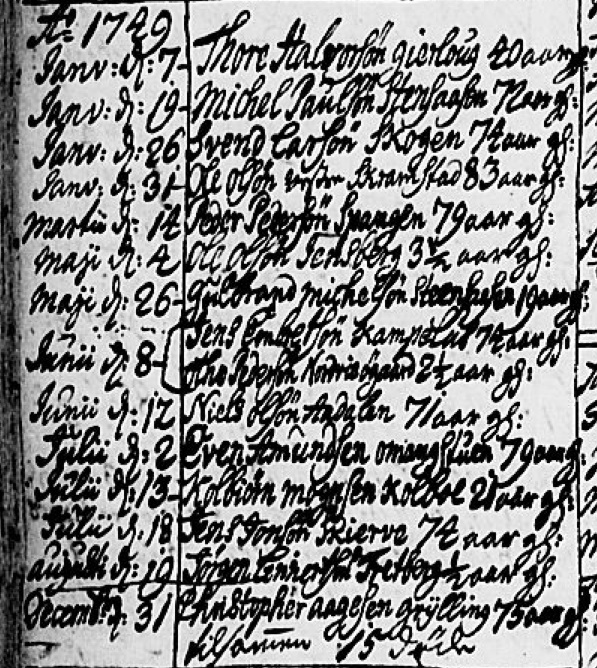 Aº 1749
Janv: d: 7 Thore Halvorsøn gierloug 40 aar gl:
Janv: d: 19 Michel Paulsøn Stensaasen 72 aar gl:
Janv: d: 26 Svend Larsøn Skogen 74 aar gl:
Janv: d: 31 Ole Olsøn vestre Skramstad 83 aar gl:
Martii d: 14 Peder Pedersøn Spangen 79 aar gl:
Maji d: 4 Ole Olsøn aar gl:
Maji d: 26 Gulbrand Michelsøn 19 aar gl:
Jens Embretsøn 74 aar gl:
Junii d: 8 Pedersøn 2½ aar gl:
Junii d: 12 Niels Olsøn Andalen 71 aar gl:
Julii d: 2 Even Amundsen omangstuen 79 aar gl:
Julii d: 13 Kolbiørn Mogensen Kolboe aar gl:
Julii d: 18 Jens Jonsøn Skierve 74 aar gl:
augusti d: 19 Jørgen Lennertsøn Fretberg ½ aar gl:
Decembr d: 31 Christopher aagesen grylling 75 aar gl:
tilsamen 15